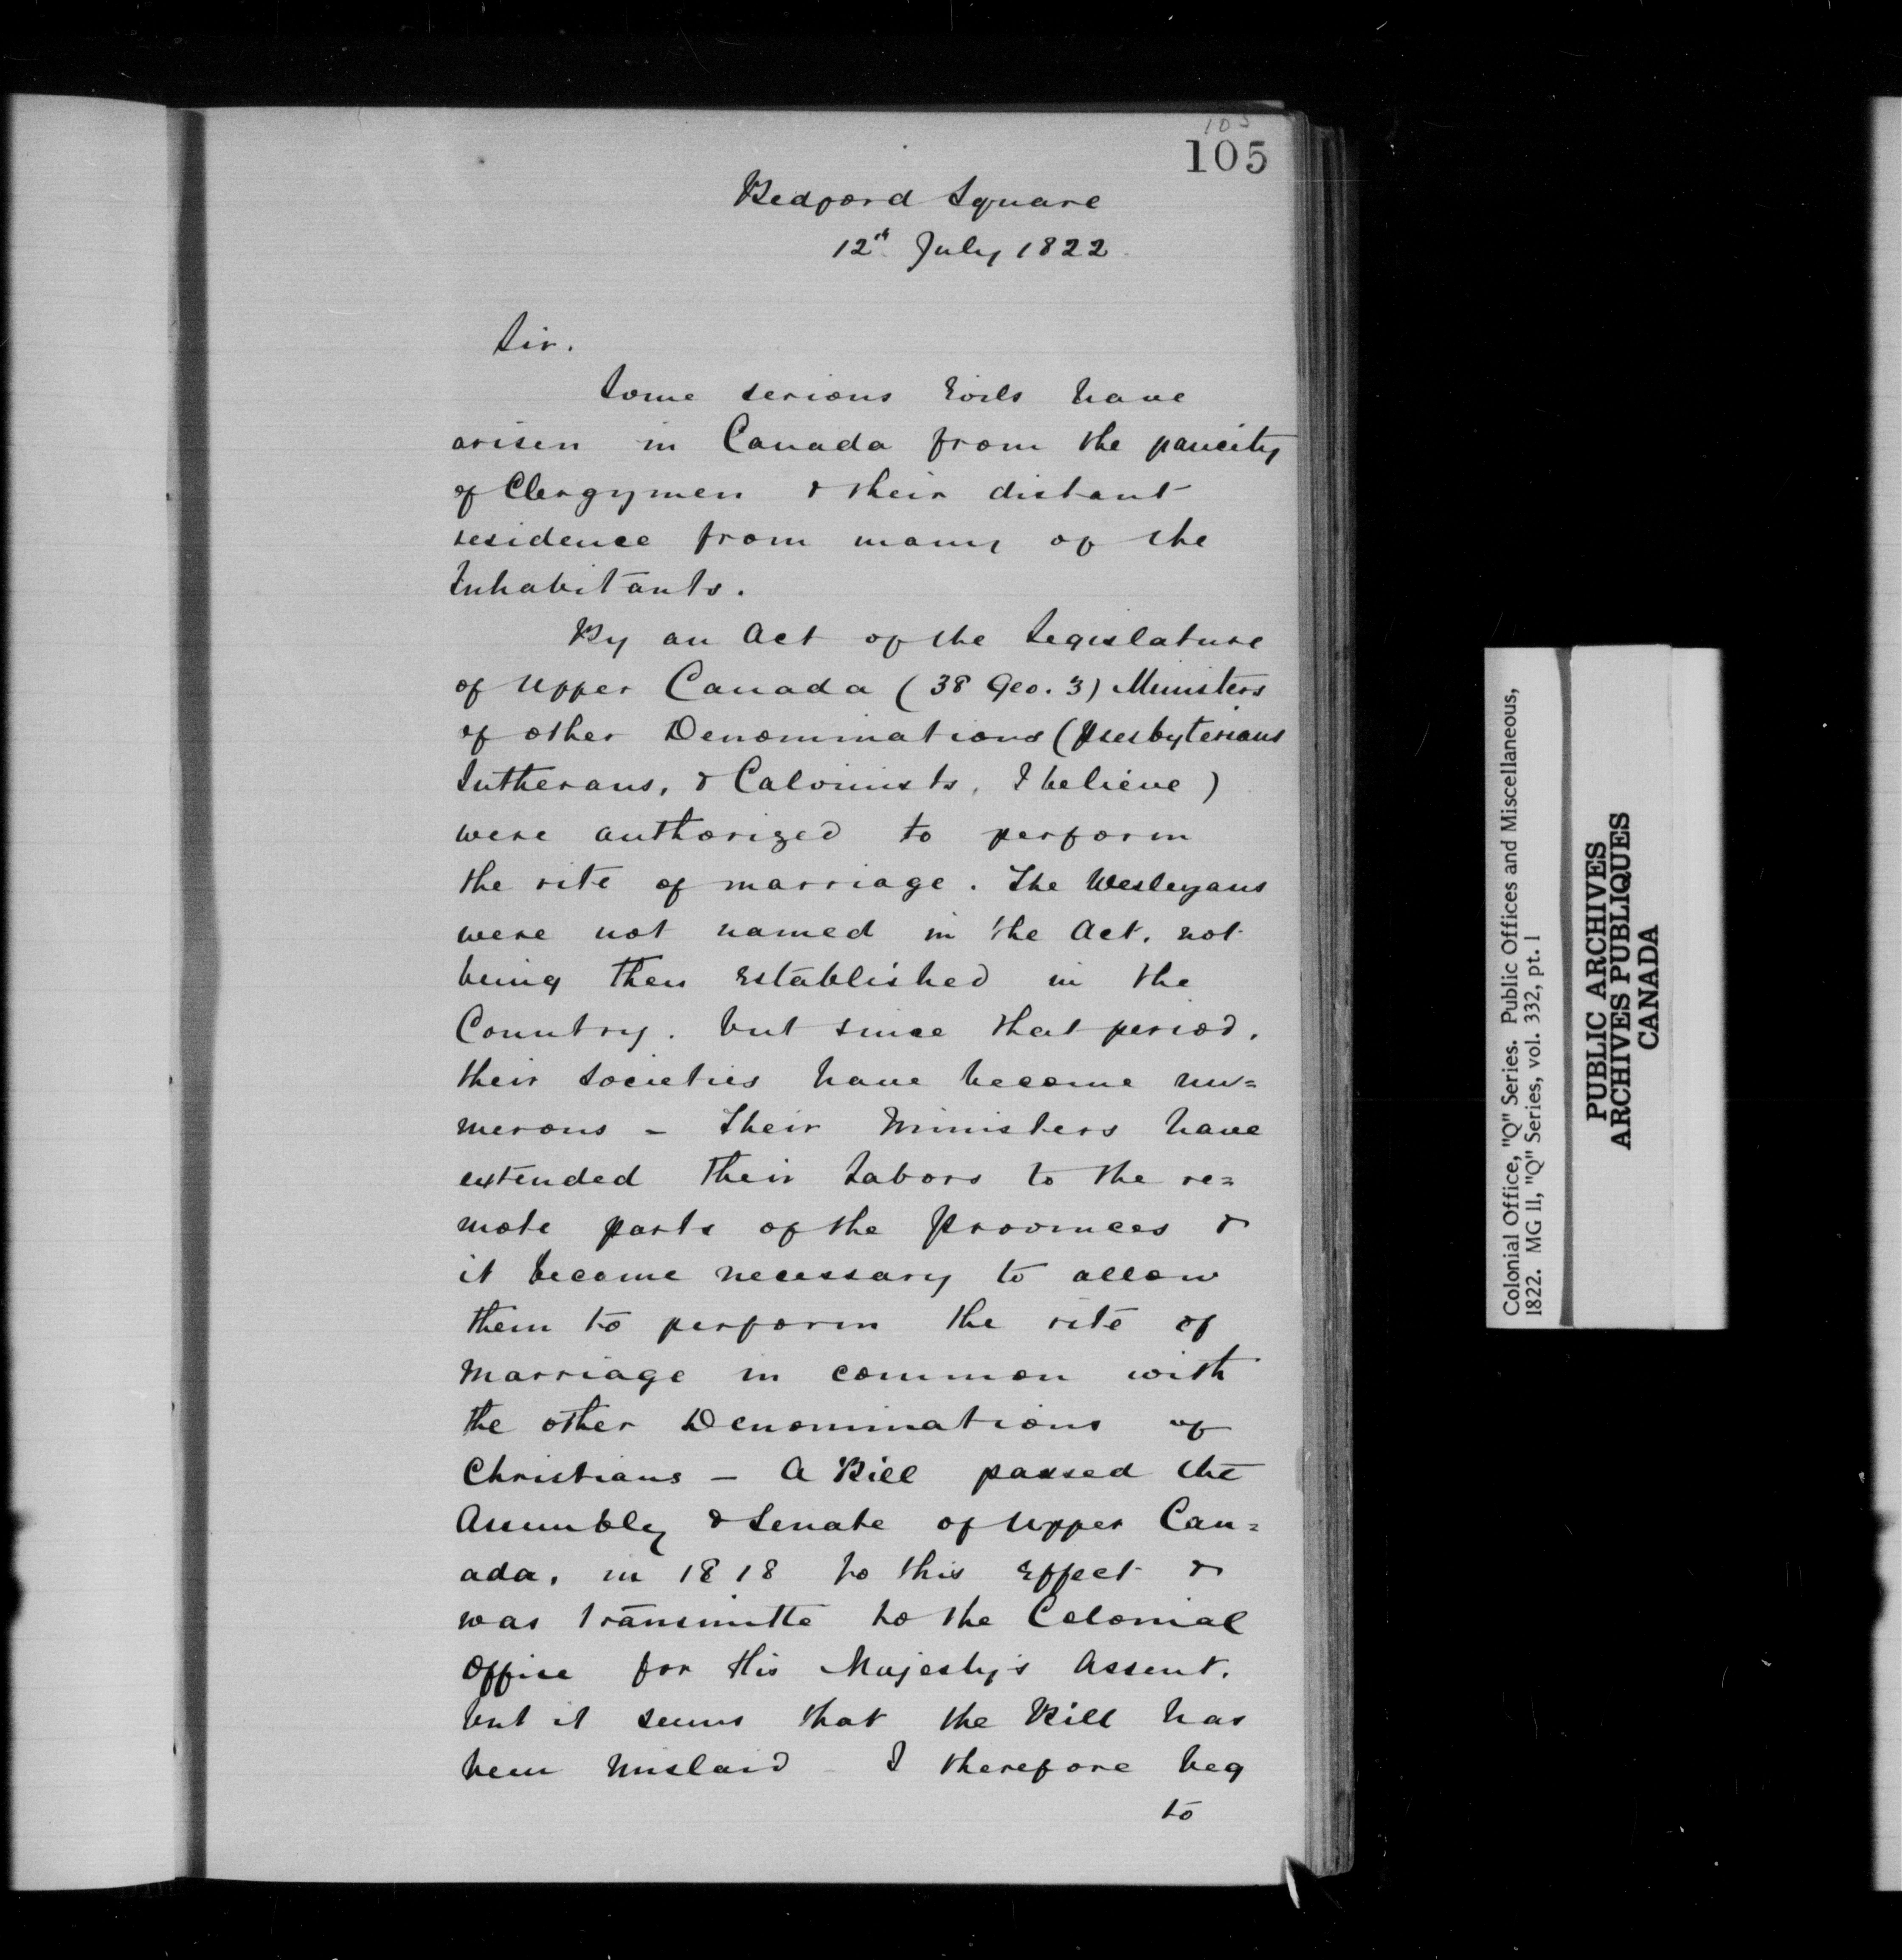 105
105
Bedford Square
12th July 1822.
Sir.
Some serious Evils have
arisen in Canada from the paucity
of Clergymen & their distant
residence from many of the
Inhabitants.
By an Act of the Legislature
of Upper Canada (38 Geo. 3) Ministers
of other Denominations (Presbyterians
Lutherans, & Calvinists, I believe)
were authorized to perform
the rite of marriage. The Wesleyans
were not named in the Act, not
being then Established in the
Country. but since that period,
their Societies have become nu=
merous - Their Ministers have
extended their Labors to the re=
mote parts of the Provinces &
it become necessary to allow
them to perform the rite of
Marriage in common with
the other Denominations of
Christians - A Bill passed the
Assembly & Senate of Upper Can=
ada, in 1818 to this Effect &
was transmitte to the Colonial
Office for His Majesty's Assent.
but it seems that the Bill has
been Mislaid - I therefore beg
to
Colonial Office, "Q" Series. Public Offices and Miscellaneous,
1822. MG 11, "Q" Series, vol. 332, pt. 1
PUBLIC ARCHIVES
ARCHIVES PUBLIQUES
CANADA